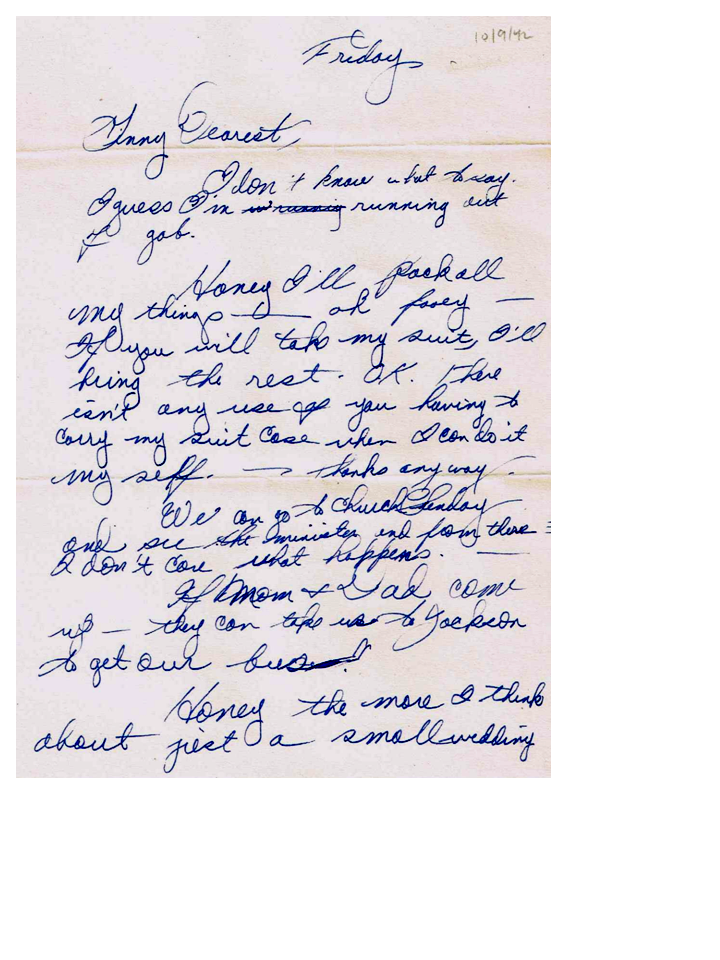 10/9/42
Friday
Ginny Dearest,
I don't know what to say.
I guess I'm running running out
of gab.
Honey I'll pack all
my things — oh fooey —
If you will take my suit, I'll
bring the rest. OK. There
isn't any use of you having to
carry my suit case when I can do it
my self. — thanks any way.
We can go to Church Sunday
and see the minister and from there —
I don't care what happens. —
If Mom & Dad come
up — they can take us to Jackson
to get our bus.
Honey the more I think
about just a small wedding